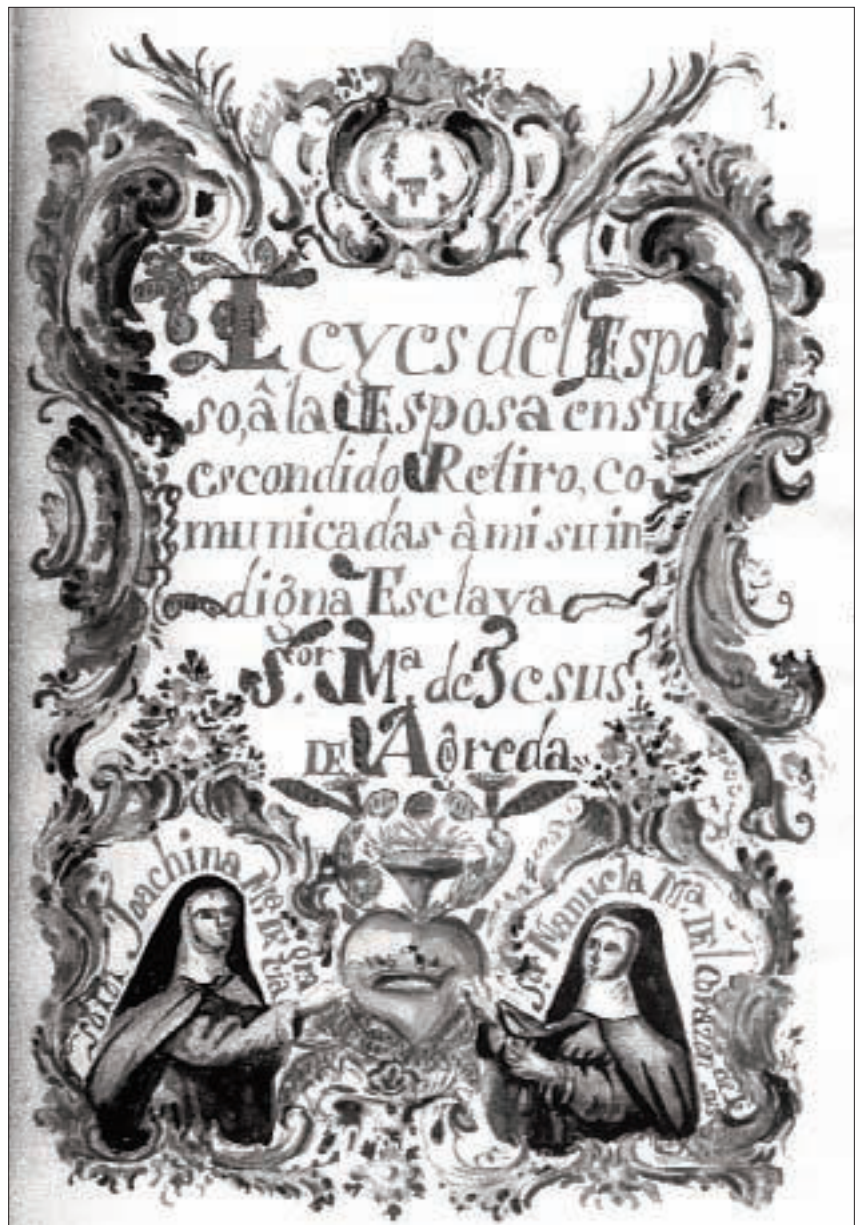 1.
Leyes del Espo
so, â la Esposa en su
escondido Retiro, co-
municadas à mi su in
digna Esclava
S.or M.a de Jesus
DE Agreda
Joachina Ma. DE
Sor Manuela Ma. DEl Corazon de